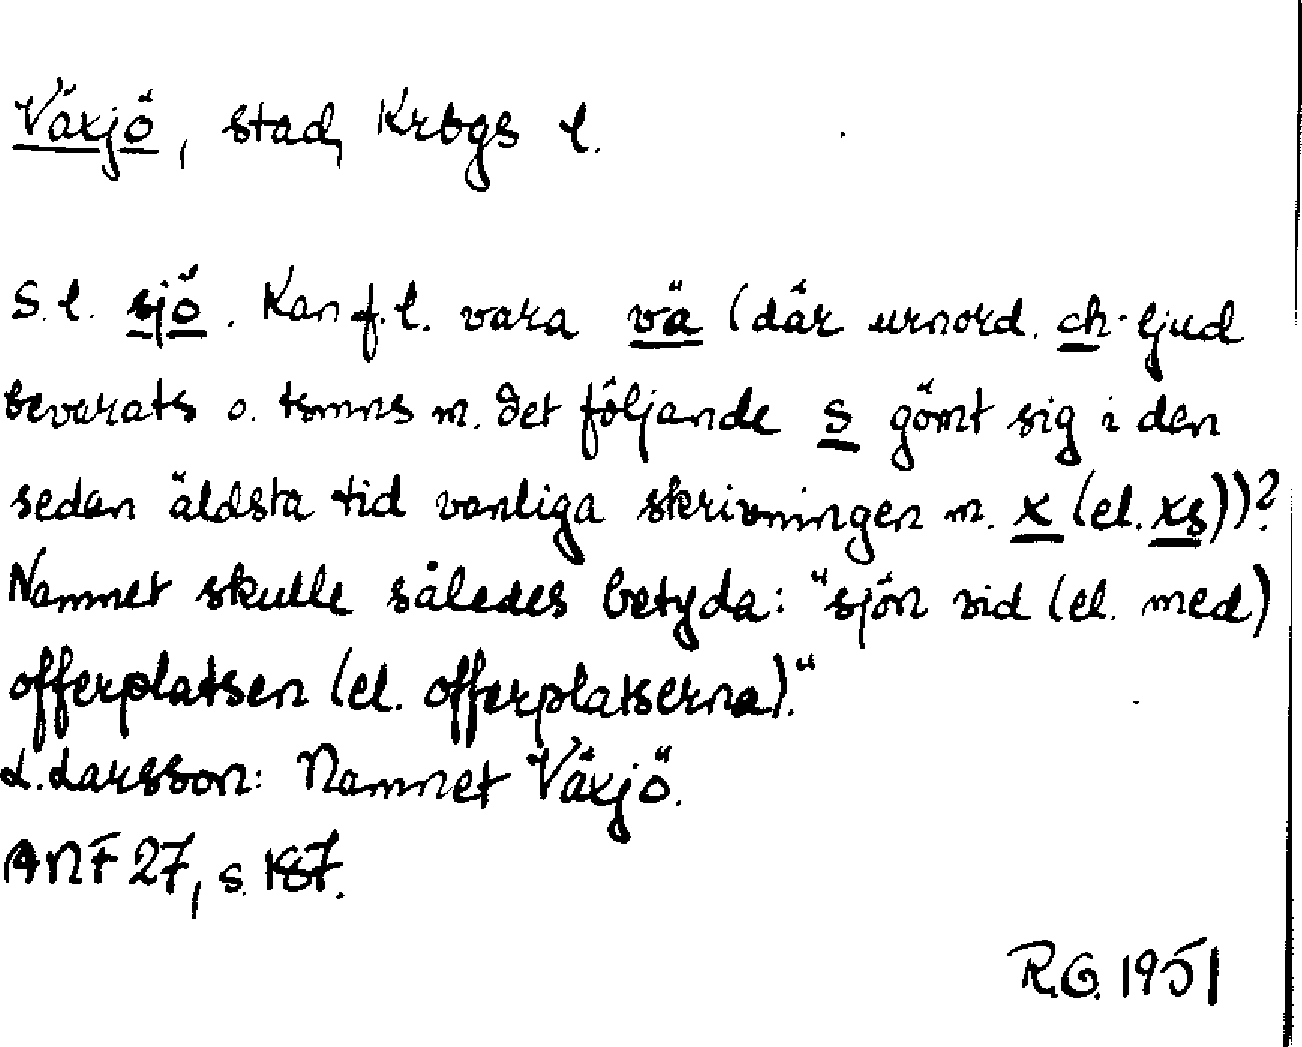 Växjö, stad, Krbgs l.
S.l. sjö. Kan f.l. vara vä (där urnord. ch-ljud
bevarats o. tsmns m. det följande s gömt sig i den
sedan äldsta tid vanliga skrivningen m. x (el. xs))?
Namnet skulle således betyda: "sjön vid (el. med)
offerplatsen (el. offerplatserna)."
L. Larsson: Namnet Växjö.
ANF 27, s. 187.
R.G. 1951